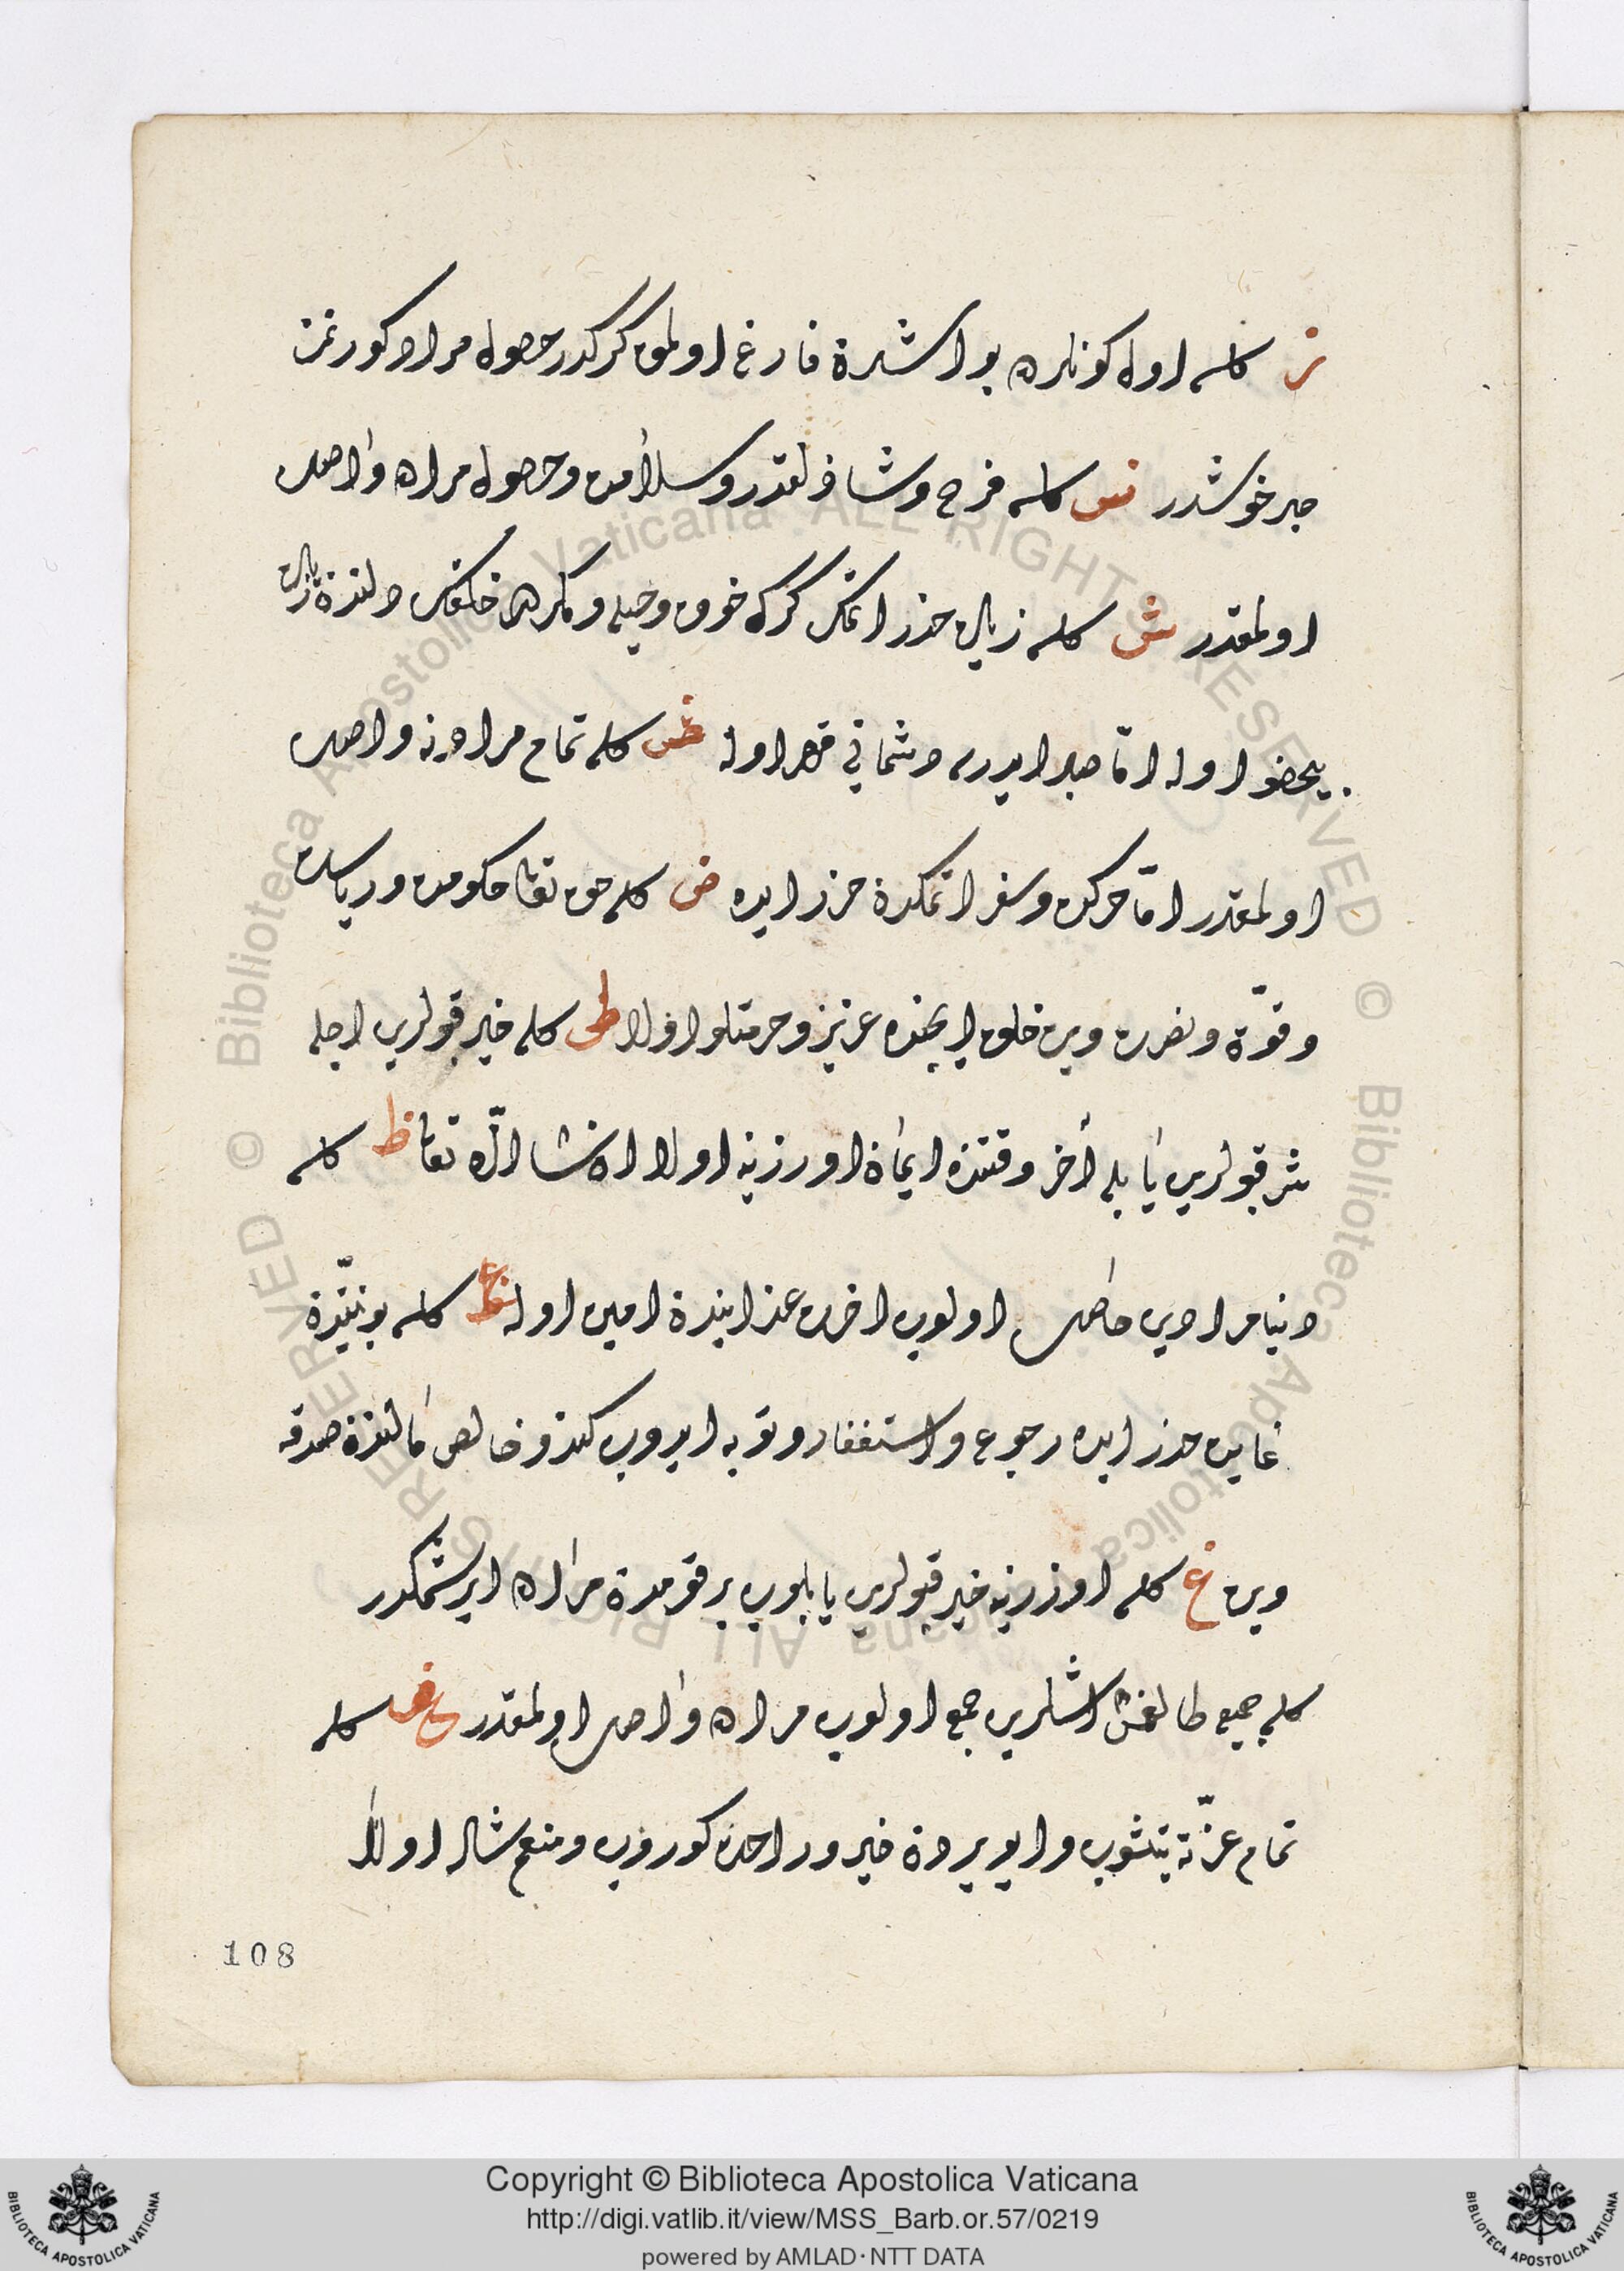 ز كلسه اول كونلرده بو اشدة فارغ اولمق كركدر حصول مراد كورنمز
صبر خوشدر س كلسه فرح وشاذلقدر وسلامت وحصول مراده واصل
اولمقدر ش كلسه زيان حذر اتمك كرك خوف وحيله ومكرده خلقك دلندة زيان
بيحضور اوله امّا صبر ايدرسه دشماني قهر اوله ص كلسه تمام مرادنه واصل
اولمقدر امّا حركت وسفر اتمكدة حزر ايده ض كلسه حق تعالى حكومت ورياست
وقوّة ونصرت ويره خلق ايچنده عزيز وحرمتلو اولا ط كلسه خير قپولري اچله
شر قپولري ياپله آخر وقتنده ايمان اوزرينه اولا ان شا الله تعالى ظ كلسه
دنيا مرادي حاصل اولوب اخرت عذابندة امين اوله ع كلسه بو نيّتدة
غايت حذر ايده رجوع واستغفار وتوبه ايدوب كندو خالص مالندة صدقه
ويره غ كلسه اوزرينه خير قپولري ياپلوب برقومدة مراده ايرشمكدر
كلسه جميع طاغلمش اشلري جمع اولوب مراده واصل اولمقدر ف كلسه
تمام عزّته يتشوب وايو يردة خير وراحت كوروب ومنعم شاد اولا
108
Copyright © Biblioteca Apostolica Vaticana
http://digi.vatlib.it/view/MSS_Barb.or.57/0219
powered by AMLAD·NTT DATA